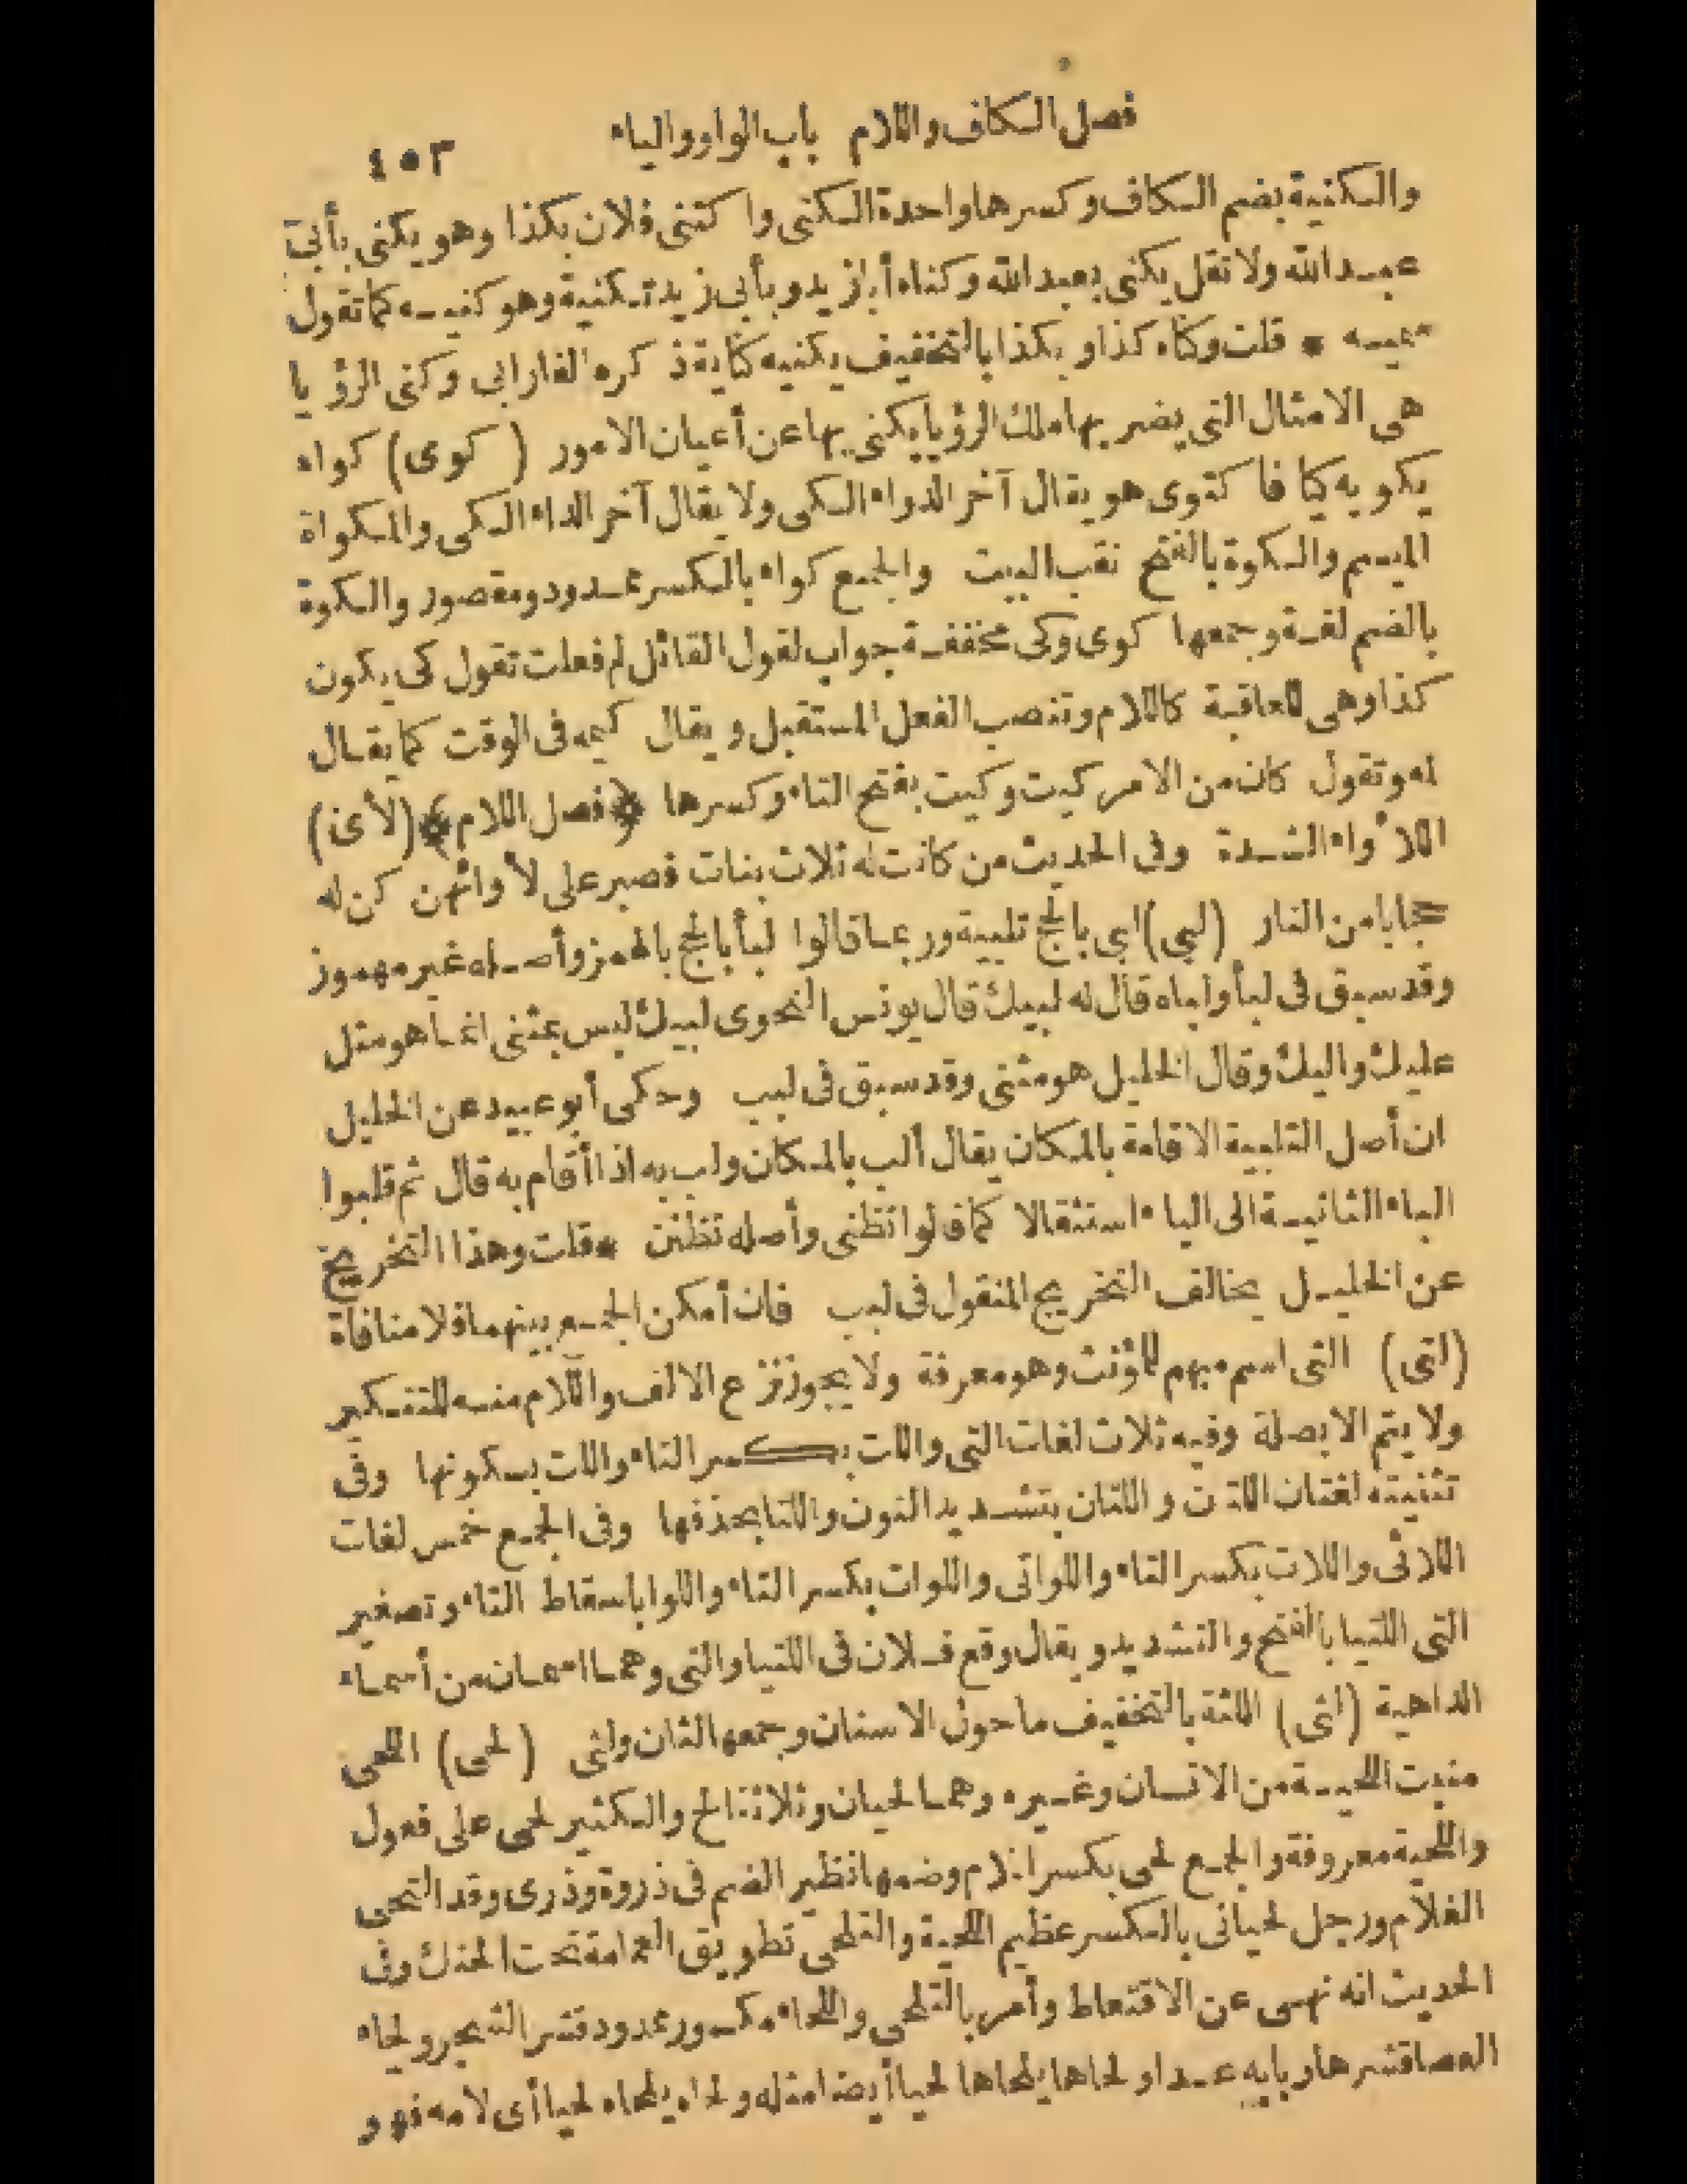 فصل الكاف واللام باب الواو والياء ٤٥٣
والكنية بضم الكاف وكسرها واحدة الكنى واكتنى فلان بكذا وهو يكنى بأبى
عبد الله ولا تقل يكنى بعبد الله وكناه أبا زيد وبأبى زيد تكنية وهو كنيه كما تقول
سميه * قلت وكناه كذا وبكذا بالتخفيف يكنيه كناية ذكره الفارابى وكنى الرؤيا
هى الامثال التى يضربها ملك الرؤيا يكنى بها عن أعيان الامور (كوى) كواه
يكويه كيا فاكتوى هو يقال آخر الدواء الكى ولا يقال آخر الداء الكى والمكواة
الميسم والكوة بالفتح نقب البيت والجمع كواء بالكسر ممدود ومقصور والكوة
بالضم لغة وجمعها كوى وكى مخففة جواب لقول القائل لم فعلت تقول كى يكون
كذا وهى للعاقبة كاللام وتنصب الفعل المستقبل ويقال كيمه فى الوقت كما يقال
لمه وتقول كان من الامر كيت وكيت بفتح التاء وكسرها ﴿فصل اللام﴾ (لأى)
اللأواء الشدة وفى الحديث من كانت له ثلاث بنات فصبر على لأوائهن كن له
حجابا من النار (لبى) لبى بالحج تلبية وربما قالوا لبأ بالحج بالهمز وأصله غير مهموز
وقد سبق فى لبأ ولباه قال له لبيك قال يونس النحوى لبيك ليس بمثنى انما هو مثل
عليك واليك وقال الخليل هو مثنى وقد سبق فى لبب وحكى أبو عبيد عن الخليل
ان أصل التلبية الاقامة بالمكان يقال ألب بالمكان ولب به اذا أقام به قال ثم قلبوا
الباء الثانية الى الياء استثقالا كما قالوا تظنى وأصله تظنن * قلت وهذا التخريج
عن الخليل يخالف التخريج المنقول فى لبب فان أمكن الجمع بينهما فلا منافاة
(لتى) التى اسم مبهم للمؤنث وهو معرفة ولا يجوز نزع الالف واللام منه للتنكير
ولا يتم الا بصلة وفيه ثلاث لغات التى واللت بكسر التاء واللت بسكونها وفى
تثنيته لغتان اللتان واللتان بتشديد النون واللتا بحذفها وفى الجمع خمس لغات
اللاتى واللات بكسر التاء واللواتى واللوات بكسر التاء واللوا باسقاط التاء وتصغير
التى اللتيا بالفتح والتشديد ويقال وقع فلان فى اللتيا والتى وهما اسمان من أسماء
الداهية (لثى) اللثة بالتخفيف ما حول الاسنان وجمعها لثات ولثى (لحى) اللحى
منبت اللحية من الانسان وغيره وهما لحيان وثلاثة ألح والكثير لحى على فعول
واللحية معروفة والجمع لحى بكسر اللام وضمها نظير الضم فى ذروة وذرى وقد التحى
الغلام ورجل لحيانى بالكسر عظيم اللحية والتلحى تطويق العمامة تحت الحنك وفى
الحديث انه نهى عن الاقتعاط وأمر بالتلحى واللحاء مكسور ممدود قشر الشجر ولحاء
العصا قشرها وبابه عدا ولحاها يلحاها لحيا أيضا مثله ولحاه يلحاه لحيا أى لامه فهو